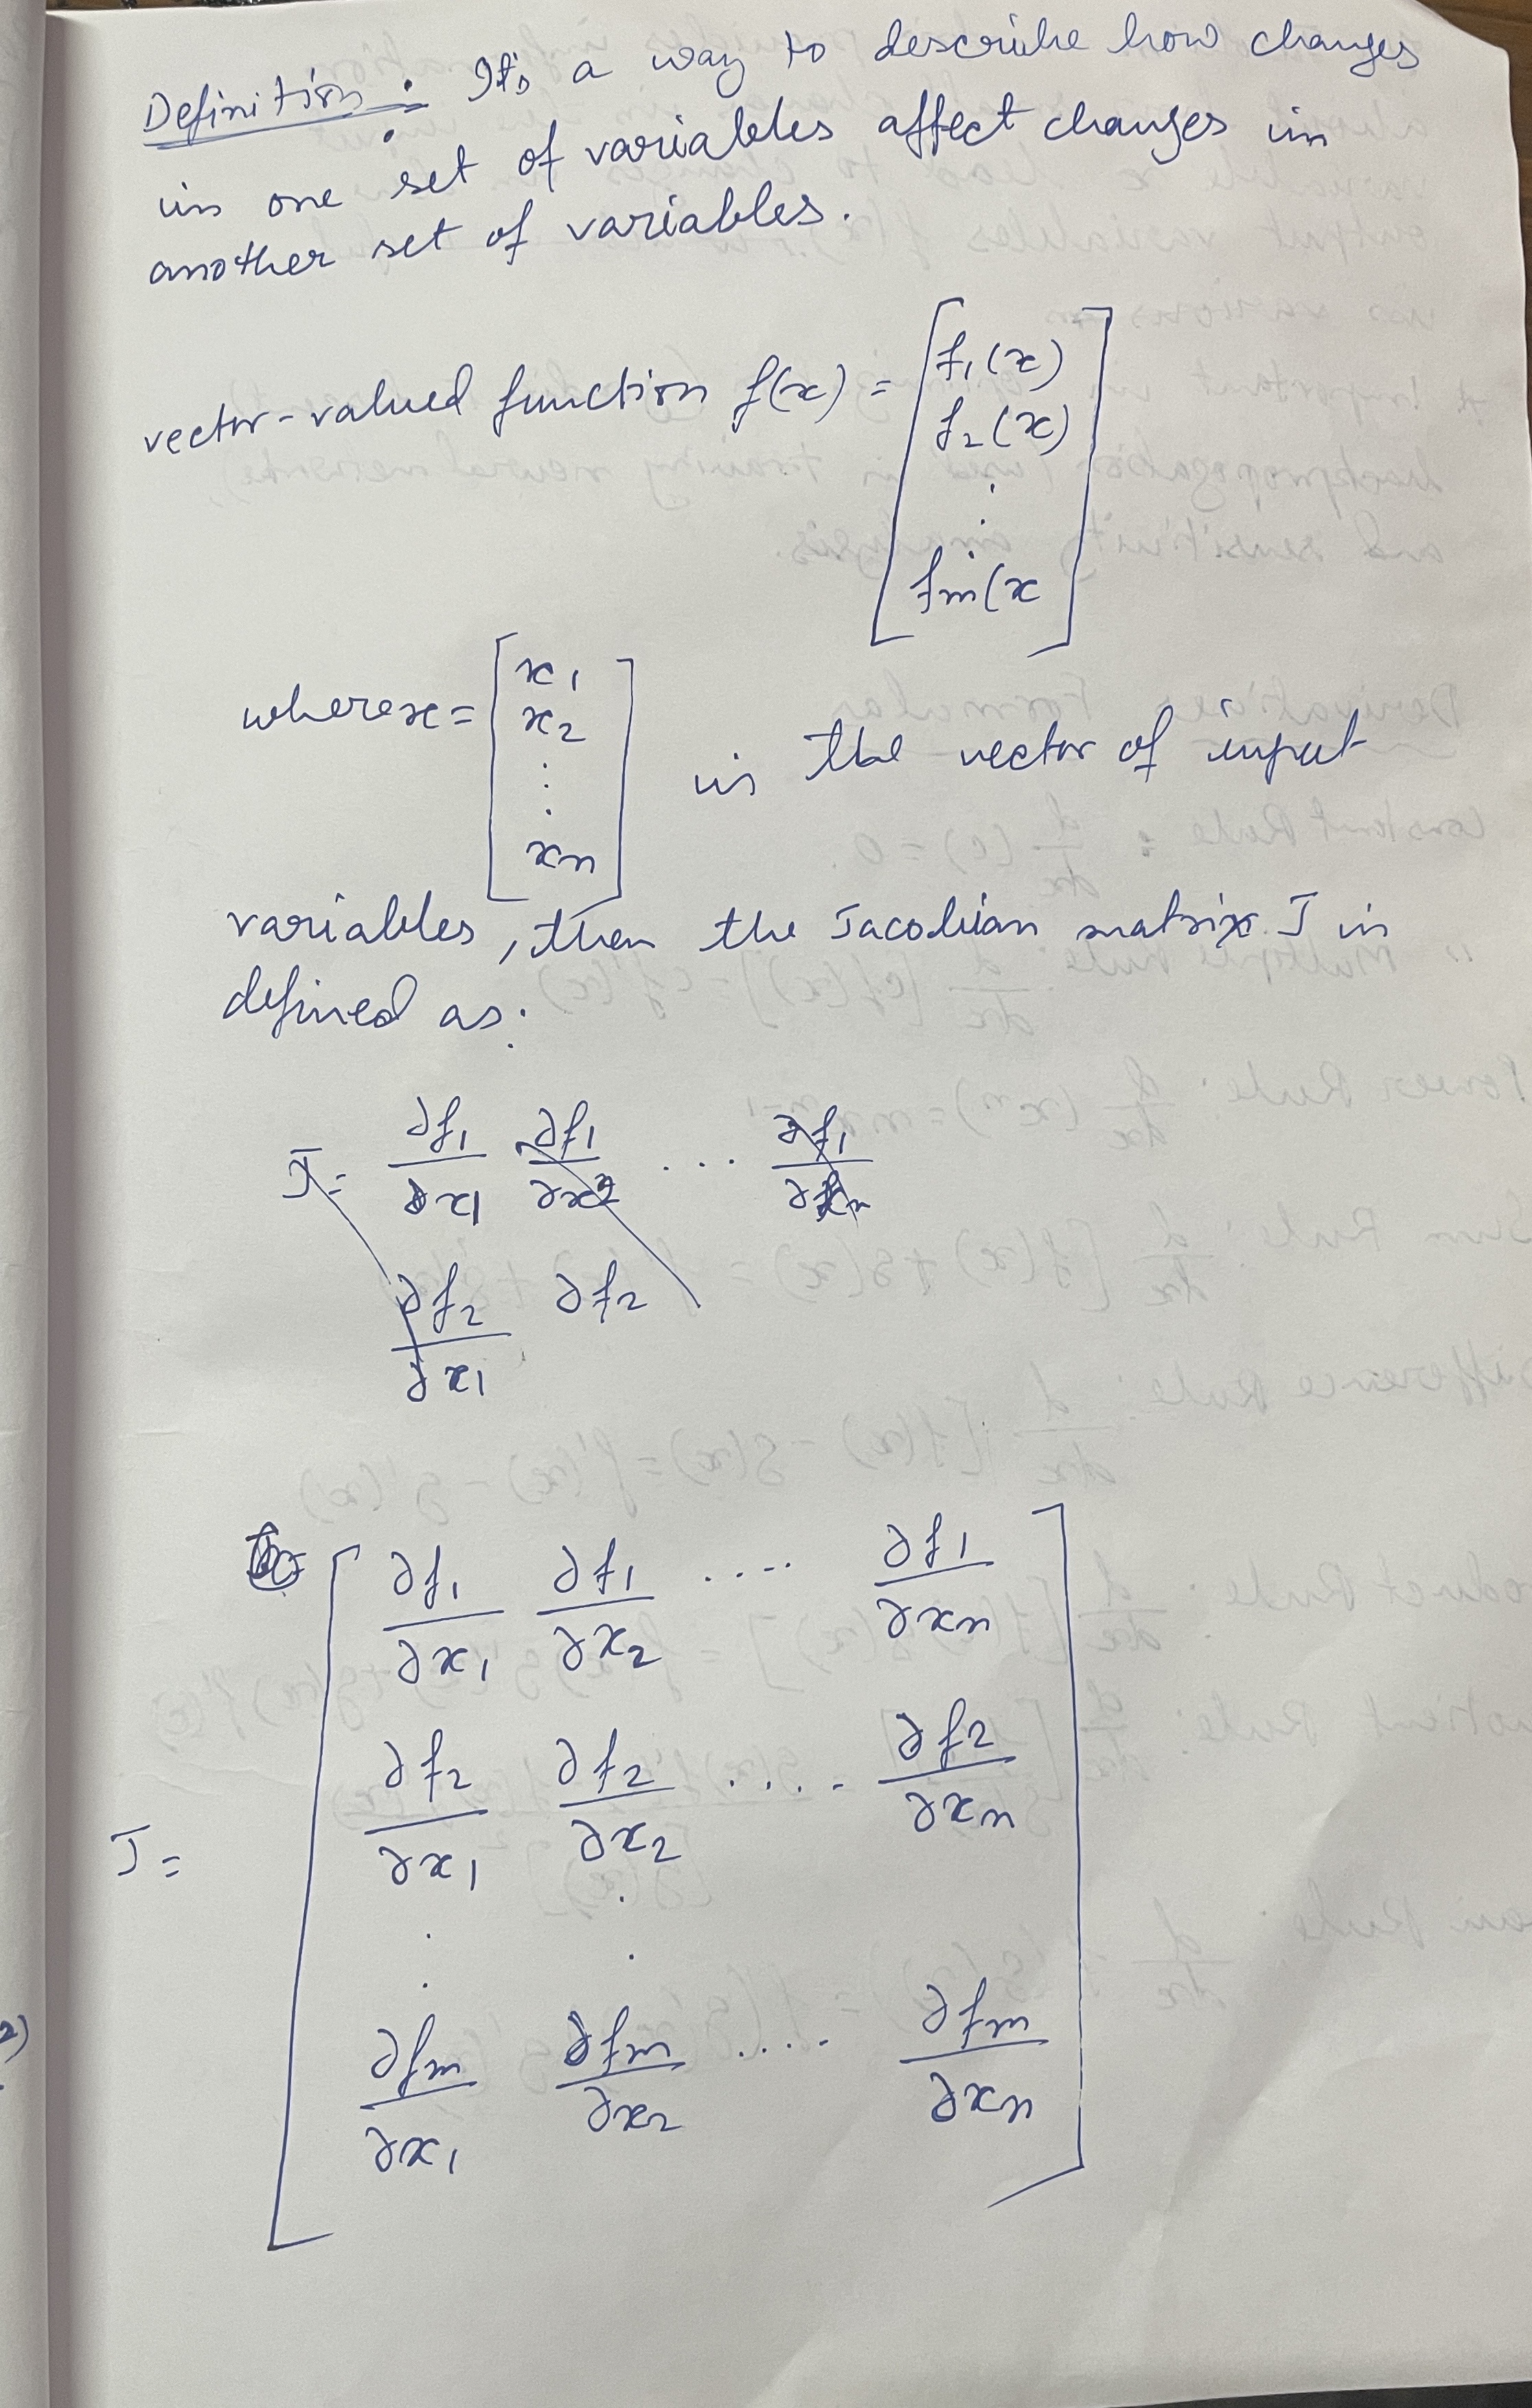 Definition : It's a way to describe how changes
in one set of variables affect changes in
another set of variables.
vector-valued function f(x) = [f₁(x)
f₂(x)
⋮
fm(x]
where x = [x₁
x₂
⋮
xn] is the vector of input
variables, then the Jacobian matrix J is
defined as:
J = ∂f₁/∂x₁ ∂f₁/∂x₂ ... ∂f₁/∂xn
∂f₂/∂x₁ ∂f₂
J = [∂f₁/∂x₁ ∂f₁/∂x₂ .... ∂f₁/∂xn
∂f₂/∂x₁ ∂f₂/∂x₂ .... ∂f₂/∂xn
⋮ ⋮
∂fm/∂x₁ ∂fm/∂x₂ .... ∂fm/∂xn]